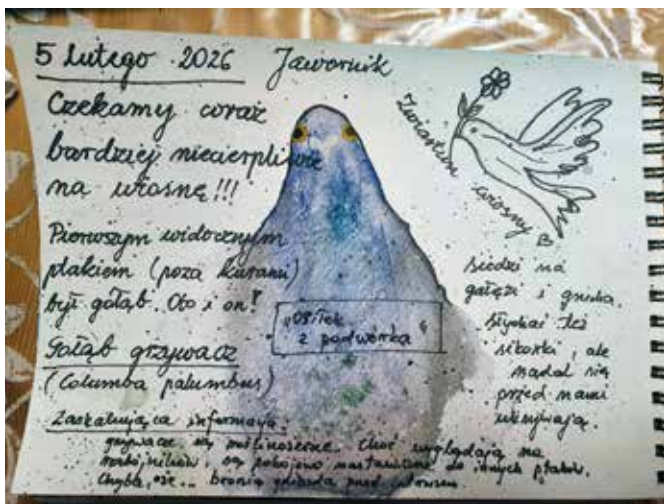 5 Lutego 2026 Jawornik
Czekamy coraz
bardziej niecierpliwie
na wiosnę!!!
Pierwszym widocznym
ptakiem (poza kurami)
był gołąb. Oto i on!
Gołąb grzywacz
(Columba palumbus)
"Osiłek
z podwórka"
Zwiastun wiosny
siedzi na
gałęzi i grucha.
Słychać też
sikorki, ale
nadal się
przed nami
ukrywają.
Zaskakująca informacja:
grzywacze są roślinożerne. Choć wyglądają na
rozbójników, są pokojowo nastawione do innych ptaków.
Chyba, że... bronią gniazda przed intruzem.